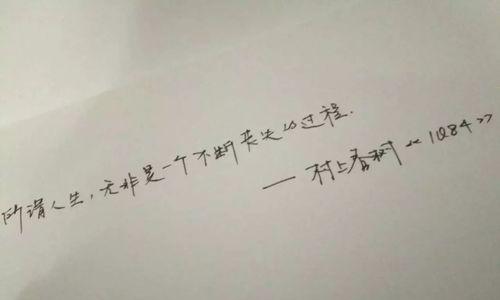 所谓人生，无非是一个不断丧失的过程.
— 村上春树《1Q84》